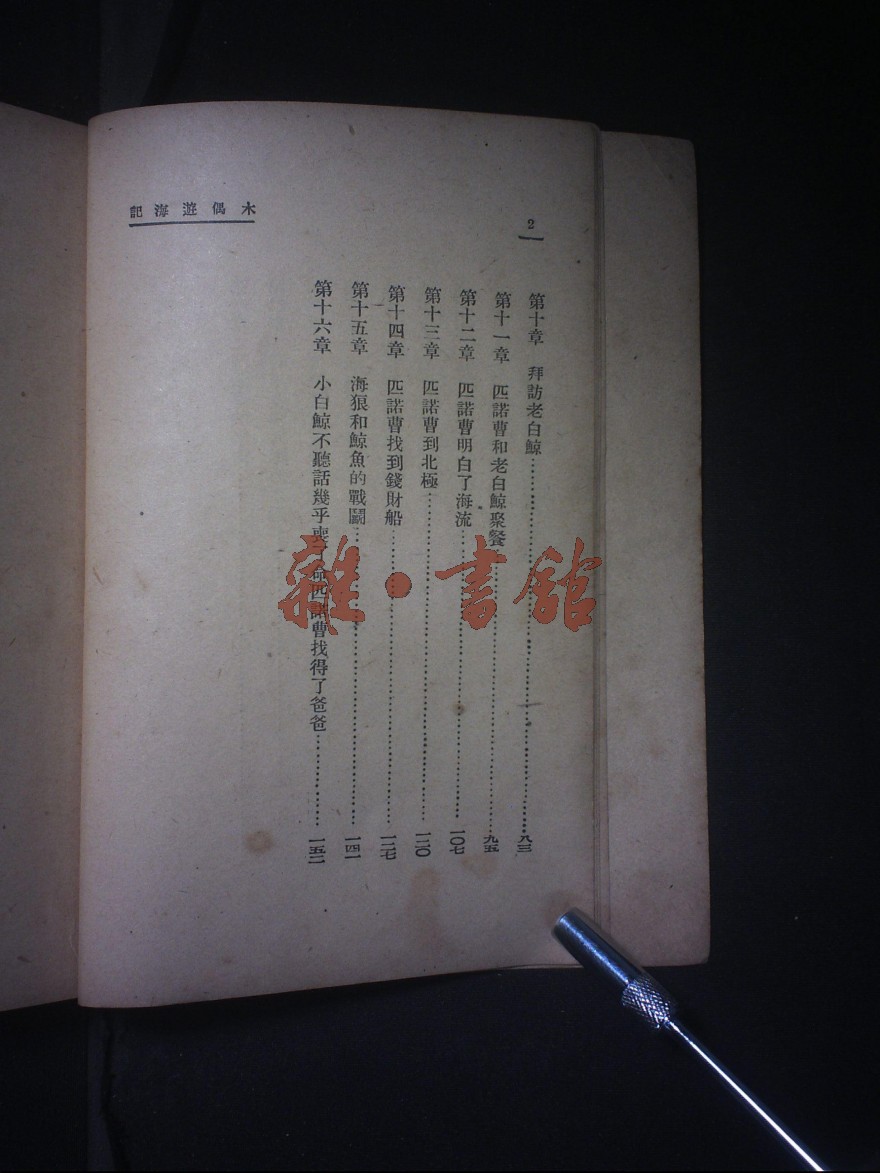 木偶遊海記
2
第十章 拜訪老白鯨……八三
第十一章 匹諾曹和老白鯨聚餐……九五
第十二章 匹諾曹明白了海流……一〇七
第十三章 匹諾曹到北極……一二〇
第十四章 匹諾曹找到錢財船……一二七
第十五章 海狼和鯨魚的戰鬭……一四一
第十六章 小白鯨不聽話幾乎喪 命匹諾曹找得了爸爸……一五二
雜·書館